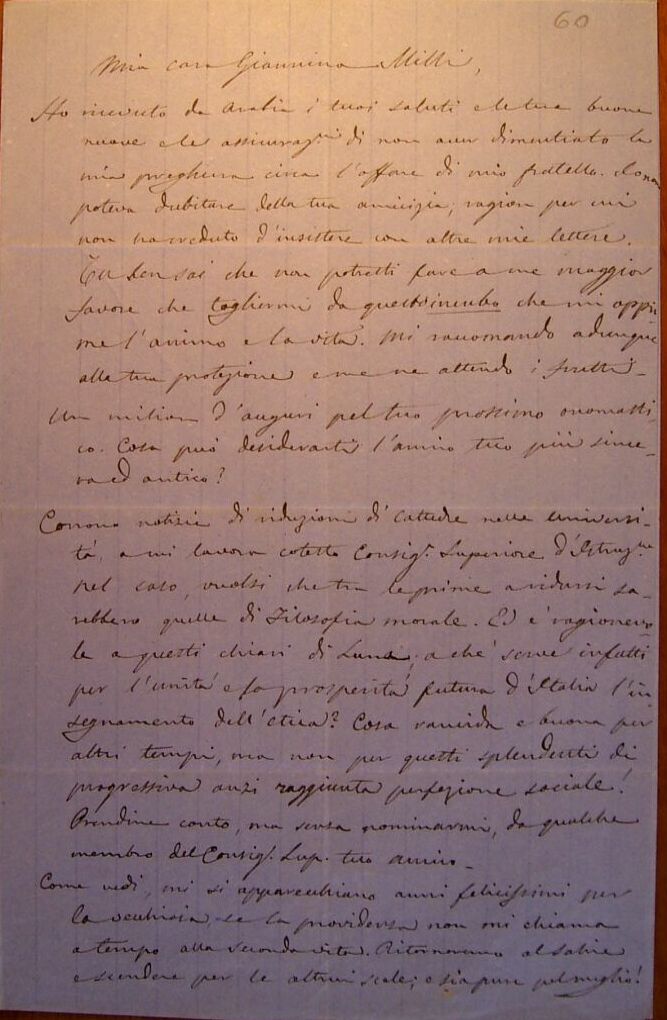 60
Mia cara Giannina Milli,
Ho ricevuto da Arabia i tuoi saluti e le tue buone
nuove e le assicuraz.ni di non aver dimenticato la
mia preghiera circa l'affare di mio fratello. Io non
poteva dubitare della tua amicizia, ragion per cui
non ho creduto d'insistere con altre mie lettere.
Tu ben sai che non potresti fare a me maggior
favore che togliermi da questo incubo che mi oppri
me l'animo e la vita. Mi raccomando adunque
alla tua protezione e me ne attendo i frutti.
Un milion d'auguri pel tuo prossimo onomasti
co. Cosa può desiderarti l'amico tuo più since-
ro ed antico?
Corrono notizie di riduzioni di cattedre nelle universi-
tà, a cui lavora cotesto Consig. Superiore d'Istruz.ne
Nel caso, vuolsi che tra le prime a ridursi sa-
rebbero quelle di Filosofia morale. Ed è ragionevo-
le a questi chiari di Luna; a che serve infatti
per l'unità e la prosperità futura d'Italia l'in
segnamento dell'etica? Cosa rancida e buona per
altri tempi, ma non per questi splendenti di
progressiva anzi raggiunta perfezione sociale!
Prendine conto, ma senza nominarmi, da qualche
membro del Consig. Sup. tuo amico.
Come vedi, mi si apparecchiano anni felicissimi per
la vecchiaia, se la providenza non mi chiama
a tempo alla seconda vita. Ritorneremo al salire
e scendere per le altrui scale; e sia pure pel meglio!